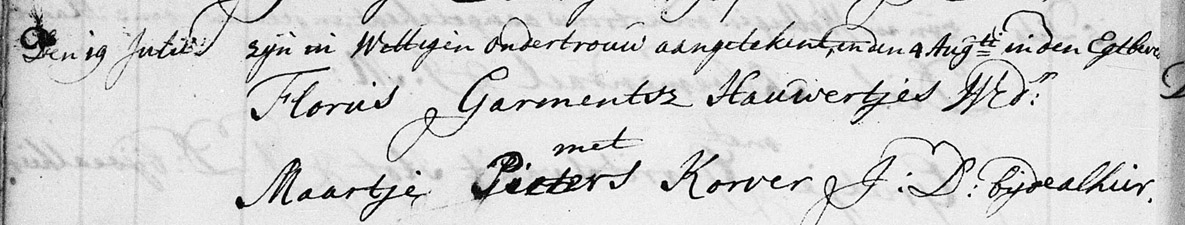 Den 19 Julii zijn in Wettigen ondertrouw aangetekent, en den 4 Augti in den Egt beve
Floris Garmentsz Hauwertjes Wedr
met
Maartje Pieters Korver J: D: bijde alhier.